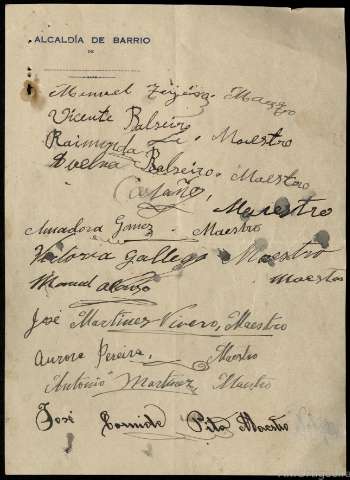 ALCALDÍA DE BARRIO
DE
Manuel Maestro
Vicente Balseiro
Raimunda Maestro
Balseiro. Maestro
Castaño,
Maestro
Amadora Gomez. Maestro
Victoria Gallego Maestro
Manuel Alonso Maestro
José Martinez Vivero, Maestro
Aurora Pereira, Maestro
Antonio Martinez, Maestro
José Cornide Pita Maestro